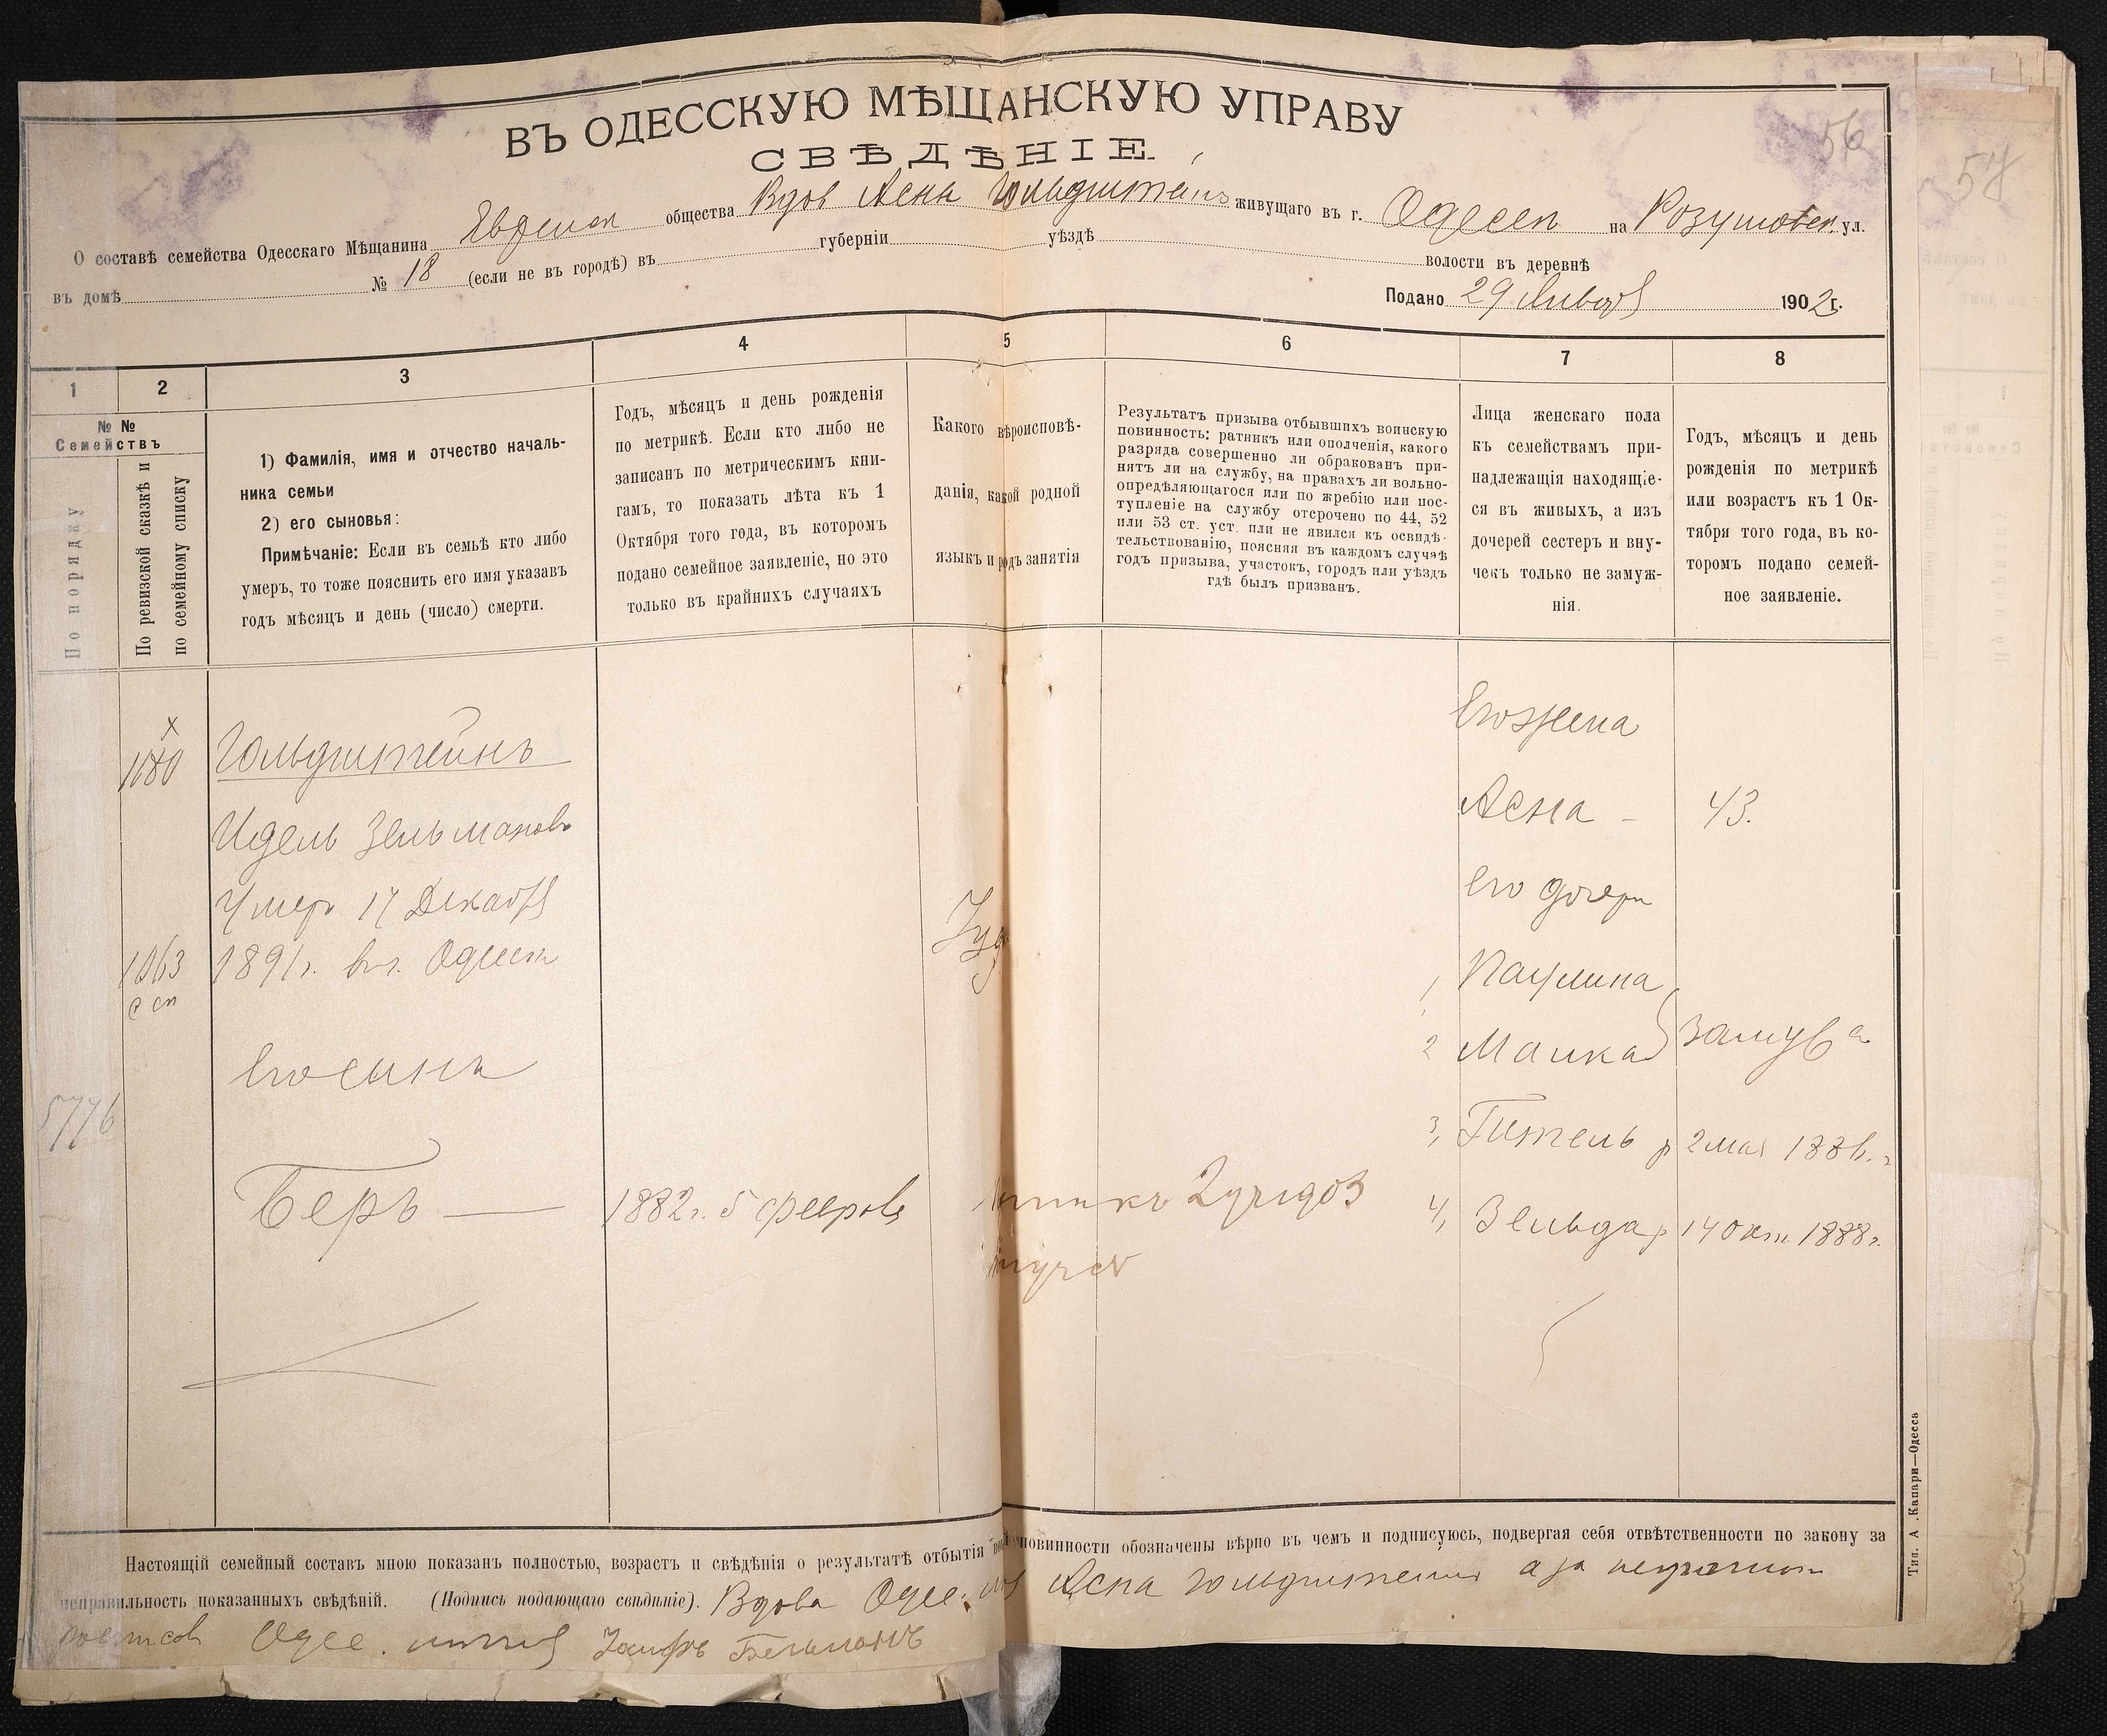 56
57
ВЪ ОДЕССКУЮ МѢЩАНСКУЮ УПРАВУ
СВѢДѢНІЕ
О составѣ семейства Одесскаго Мѣщанина Еврейск общества Вдов Асна Гольдштейнъ живущаго въ г. Одесск на Розумовск. ул.
въ домѣ № 18 (если не въ городѣ) въ губерніи уѣздѣ волости въ деревнѣ
Подано 29 Января 1902 г.
1 2 3 4 5 6 7 8
№ №
Семействъ
По порядку
По ревизской сказкѣ и
по семейному списку
1) Фамилія, имя и отчество началь-
ника семьи
2) его сыновья:
Примѣчаніе: Если въ семьѣ кто либо
умеръ, то тоже пояснить его имя указавъ
годъ мѣсяцъ и день (число) смерти.
Годъ, мѣсяцъ и день рожденія
по метрикѣ. Если кто либо не
записанъ по метрическимъ кни-
гамъ, то показать лѣта къ 1
Октября того года, въ которомъ
подано семейное заявленіе, но это
только въ крайнихъ случаяхъ
Какого вѣроисповѣ-
данія, какой родной
языкъ и родъ занятія
Результатъ призыва отбывшихъ воинскую
повинность: ратникъ или ополченія, какого
разряда совершенно ли обракованъ при-
нятъ ли на службу, на правахъ ли вольно-
опредѣляющагося или по жребію или пос-
тупленіе на службу отсрочено по 44, 52
или 53 ст. уст. или не явился къ освидѣ-
тельствованію, поясняя въ каждомъ случаѣ
годъ призыва, участокъ, городъ или уѣздъ
гдѣ былъ призванъ.
Лица женскаго пола
къ семействамъ при-
надлежащія находящіе-
ся въ живыхъ, а изъ
дочерей сестеръ и вну-
чекъ только не замуж-
нія.
Годъ, мѣсяцъ и день
рожденія по метрикѣ
или возрастъ къ 1 Ок-
тября того года, въ ко-
торомъ подано семей-
ное заявленіе.
х
1680
Гольдштейнъ
Идель Зельмановъ
Умеръ 17 Декабря
1063 1891 г. въ г. Одессѣ
с сп
Его сынъ
5776
Беръ — 1882 г. 5 февраля
Іуд
Его жена
Асна - 43.
Его дочери
1 Паулина
2 Малка замужа
3, Гитель р 2 мая 1886 г.
4, Зельда р 14 Окт. 1888 г.
Настоящій семейный составъ мною показанъ полностью, возрастъ и свѣдѣнія о результатѣ отбытія повинности обозначены вѣрно въ чемъ и подписуюсь, подвергая себя отвѣтственности по закону за
неправильность показанныхъ свѣдѣній. (Подпись подающаго свѣдѣніе). Вдова Одес. Асна Гольдштейнъ а за неграмотн
Одес.
Тип. А. Капари—Одесса